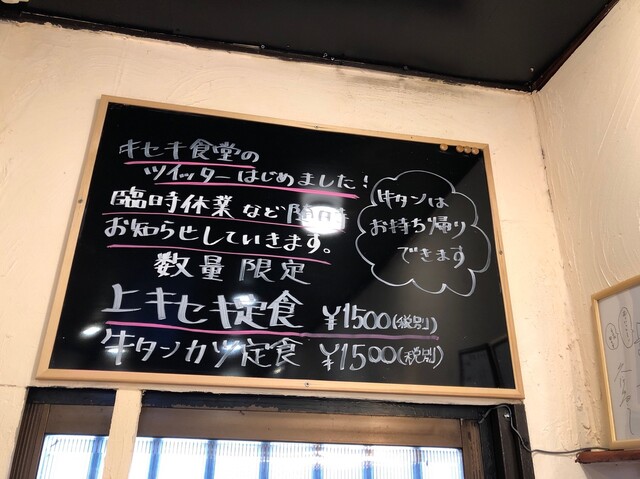 キセキ食堂の
ツイッターはじめました！
臨時休業など随時
お知らせしていきます。
数量限定
上キセキ定食 ¥1500(税別)
牛タンカツ定食 ¥1500(税別)
牛タンは
お持ち帰り
できます